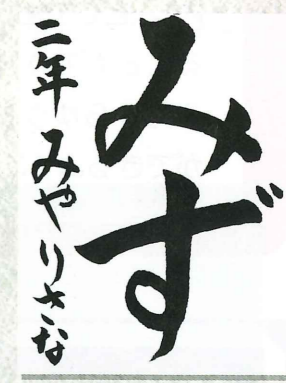 みず
二年 みやりさな